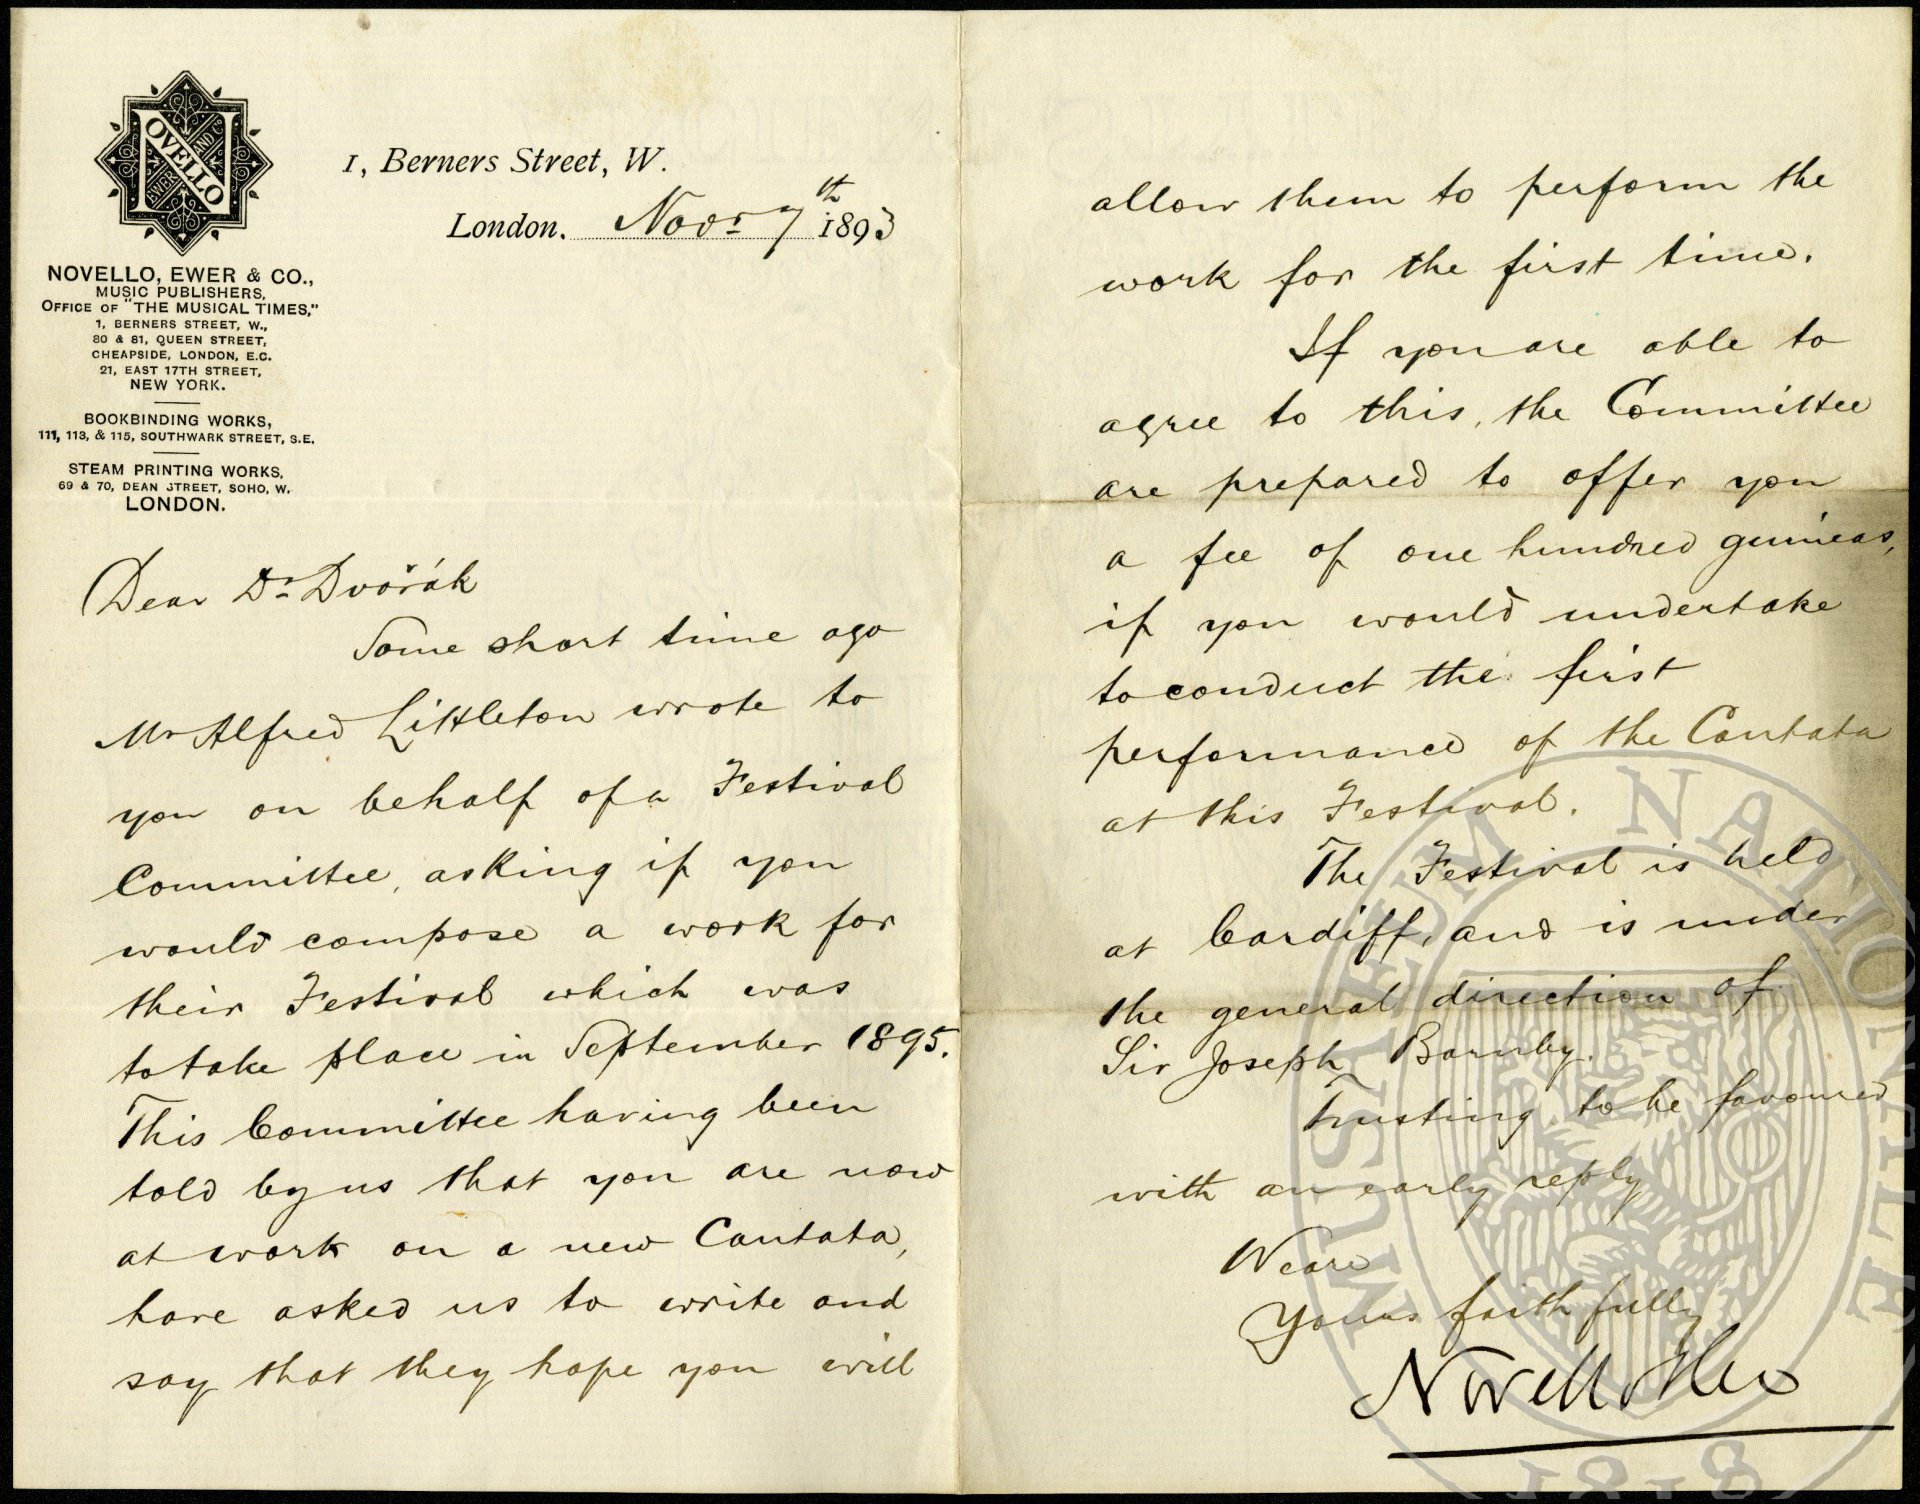 NOVELLO
EWER
AND Co
NOVELLO, EWER & CO.,
MUSIC PUBLISHERS,
OFFICE OF "THE MUSICAL TIMES,"
1, BERNERS STREET, W.,
80 & 81, QUEEN STREET,
CHEAPSIDE, LONDON, E.C.
21, EAST 17TH STREET,
NEW YORK.
BOOKBINDING WORKS,
111, 113, & 115, SOUTHWARK STREET, S.E.
STEAM PRINTING WORKS,
69 & 70, DEAN STREET, SOHO, W.
LONDON.
1, Berners Street, W.
London. Novr 7th 1893
Dear Dr Dvořák
Some short time ago
Mr Alfred Littleton wrote to
you on behalf of a Festival
Committee, asking if you
would compose a work for
their Festival which was
to take place in September 1895.
This Committee having been
told by us that you are now
at work on a new Cantata,
have asked us to write and
say that they hope you will
allow them to perform the
work for the first time.
If you are able to
agree to this, the Committee
are prepared to offer you
a fee of one hundred guineas,
if you would undertake
to conduct the first
performance of the Cantata
at this Festival.
The Festival is held
at Cardiff, and is under
the general direction of
Sir Joseph Barnby.
Trusting to be favoured
with an early reply
We are
Yours faithfully
Novello
MUSAEUM NATIONALE
1818